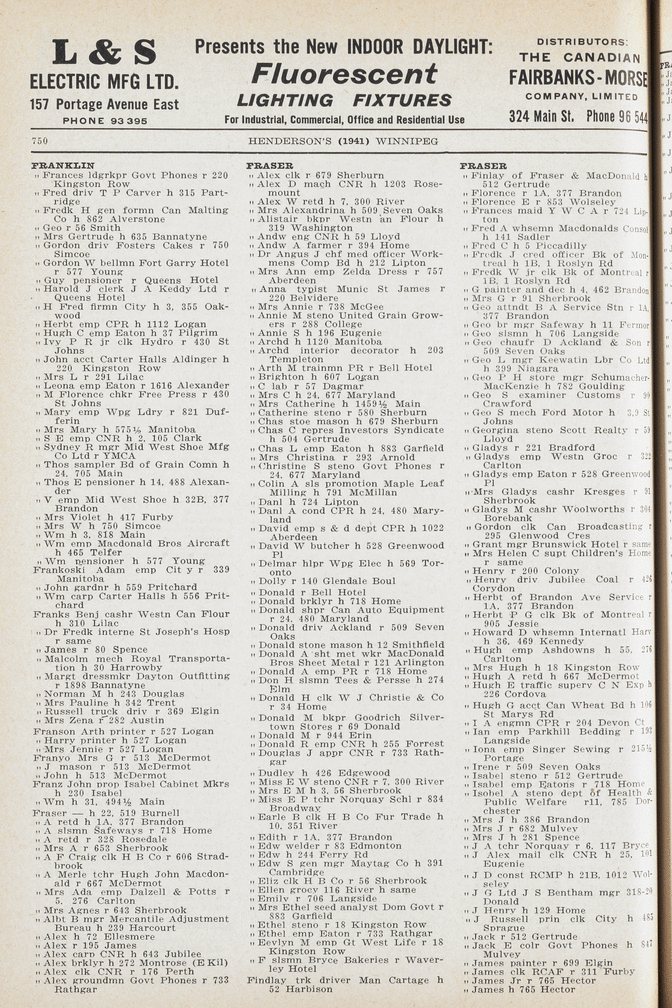 L & S
ELECTRIC MFG LTD.
157 Portage Avenue East
PHONE 93 395
Presents the New INDOOR DAYLIGHT:
Fluorescent
LIGHTING FIXTURES
For Industrial, Commercial, Office and Residential Use
DISTRIBUTORS:
THE CANADIAN
FAIRBANKS-MORSE
COMPANY, LIMITED
324 Main St. Phone 96 544
750
HENDERSON'S (1941) WINNIPEG
FRANKLIN
" Frances ldgrkpr Govt Phones r 220
Kingston Row
" Fred driv T P Carver h 315 Part-
ridge
" Fredk H gen formn Can Malting
Co h 862 Alverstone
" Geo r 56 Smith
" Mrs Gertrude h 635 Bannatyne
" Gordon driv Fosters Cakes r 750
Simcoe
" Gordon W bellmn Fort Garry Hotel
r 577 Young
" Guy pensioner r Queens Hotel
" Harold J clerk J A Keddy Ltd r
Queens Hotel
" H Fred firmn City h 3, 355 Oak-
wood
" Herbt emp CPR h 1112 Logan
" Hugh C emp Eaton h 37 Pilgrim
" Ivy P R jr clk Hydro r 430 St
Johns
" John acct Carter Halls Aldinger h
220 Kingston Row
" Mrs L r 291 Lilac
" Leona emp Eaton r 1616 Alexander
" M Florence chkr Free Press r 430
St Johns
" Mary emp Wpg Ldry r 821 Duf-
ferin
" Mrs Mary h 575½ Manitoba
" S E emp CNR h 2, 105 Clark
" Sydney R mgr Mid West Shoe Mfg
Co Ltd r YMCA
" Thos sampler Bd of Grain Comn h
24, 705 Main
" Thos E pensioner h 14, 488 Alexan-
der
" V emp Mid West Shoe h 32B, 377
Brandon
" Mrs Violet h 417 Furby
" Mrs W h 750 Simcoe
" Wm h 3, 818 Main
" Wm emp Macdonald Bros Aircraft
h 465 Telfer
" Wm pensioner h 577 Young
Frankoski Adam emp City r 339
Manitoba
" John gardnr h 559 Pritchard
" Wm carp Carter Halls h 556 Prit-
chard
Franks Benj cashr Westn Can Flour
h 310 Lilac
" Dr Fredk interne St Joseph's Hosp
r same
" James r 80 Spence
" Malcolm mech Royal Transporta-
tion h 30 Harrowby
" Margt dressmkr Dayton Outfitting
r 1898 Bannatyne
" Norman M h 243 Douglas
" Mrs Pauline h 342 Trent
" Russell truck driv r 369 Elgin
" Mrs Zena r 282 Austin
Franson Arth printer r 527 Logan
" Harry printer h 527 Logan
" Mrs Jennie r 527 Logan
Franyo Mrs G r 513 McDermot
" J mason r 513 McDermot
" John h 513 McDermot
Franz John prop Isabel Cabinet Mkrs
h 230 Isabel
" Wm h 31, 494½ Main
Fraser — h 22, 519 Burnell
" A retd h 1A, 377 Brandon
" A slsmn Safeways r 718 Home
" A retd r 328 Rosedale
" Mrs A r 653 Sherbrook
" A F Craig clk H B Co r 606 Strad-
brook
" A Merle tchr Hugh John Macdon-
ald r 667 McDermot
" Mrs Ada emp Dalzell & Potts r
5, 276 Carlton
" Mrs Agnes r 643 Sherbrook
" Albt B mgr Mercantile Adjustment
Bureau h 239 Harcourt
" Alex h 72 Ellesmere
" Alex r 195 James
" Alex carp CNR h 643 Jubilee
" Alex brklyr h 272 Montrose (E Kil)
" Alex clk CNR r 176 Perth
" Alex groundmn Govt Phones r 733
Rathgar
FRASER
" Alex clk r 679 Sherburn
" Alex D mach CNR h 1203 Rose-
mount
" Alex W retd h 7, 300 River
" Mrs Alexandrina h 509 Seven Oaks
" Alistair bkpr Westn an Flour h
319 Washington
" Andw eng CNR h 59 Lloyd
" Andw A farmer r 394 Home
" Dr Angus J chf med officer Work-
mens Comp Bd h 212 Lipton
" Mrs Ann emp Zelda Dress r 757
Aberdeen
" Anna typist Munic St James r
220 Belvidere
" Mrs Annie r 738 McGee
" Annie M steno United Grain Grow-
ers r 288 College
" Annie S h 196 Eugenie
" Archd h 1120 Manitoba
" Archd interior decorator h 203
Templeton
" Arth M trainmn PR r Bell Hotel
" Brighton h 607 Logan
" C lab r 57 Dagmar
" Mrs C h 24, 677 Maryland
" Mrs Catherine h 1459½ Main
" Catherine steno r 580 Sherburn
" Chas stoe mason h 679 Sherburn
" Chas C repres Investors Syndicate
h 504 Gertrude
" Chas L emp Eaton h 883 Garfield
" Mrs Christina r 293 Arnold
" Christine S steno Govt Phones r
24, 677 Maryland
" Colin A sls promotion Maple Leaf
Milling h 791 McMillan
" Danl h 724 Lipton
" Danl A cond CPR h 24, 480 Mary-
land
" David emp s & d dept CPR h 1022
Aberdeen
" David W butcher h 528 Greenwood
Pl
" Delmar hlpr Wpg Elec h 569 Tor-
onto
" Dolly r 140 Glendale Boul
" Donald r Bell Hotel
" Donald brklyr h 718 Home
" Donald shpr Can Auto Equipment
r 24, 480 Maryland
" Donald driv Ackland r 509 Seven
Oaks
" Donald stone mason h 12 Smithfield
" Donald A sht met wkr MacDonald
Bros Sheet Metal r 121 Arlington
" Donald A emp PR r 718 Home
" Don H slsmn Tees & Persse h 274
Elm
" Donald H clk W J Christie & Co
r 34 Home
" Donald M bkpr Goodrich Silver-
town Stores r 69 Donald
" Donald M r 944 Erin
" Donald R emp CNR h 255 Forrest
" Douglas J appr CNR r 733 Rath-
gar
" Dudley h 426 Edgewood
" Miss E W steno CNR r 7, 300 River
" Mrs E M h 3, 56 Sherbrook
" Miss E P tchr Norquay Schl r 834
Broadway
" Earle B clk H B Co Fur Trade h
10, 351 River
" Edith r 1A, 377 Brandon
" Edw welder r 83 Edmonton
" Edw h 244 Ferry Rd
" Edw S gen mgr Maytag Co h 391
Cambridge
" Eliz clk H B Co r 56 Sherbrook
" Ellen grocy 116 River h same
" Emily r 706 Langside
" Mrs Ethel seed analyst Dom Govt r
883 Garfield
" Ethel steno r 18 Kingston Row
" Ethel emp Eaton r 733 Rathgar
" Eevlyn M emp Gt West Life r 18
Kingston Row
" F slsmn Bryce Bakeries r Waver-
ley Hotel
Findlay trk driver Man Cartage h
52 Harbison
FRASER
" Finlay of Fraser & MacDonald h
512 Gertrude
" Florence r 1A, 377 Brandon
" Florence E r 853 Wolseley
" Frances maid Y W C A r 724 Lip-
ton
" Fred A whsemn Macdonalds Consol
h 141 Sadler
" Fred C h 5 Piccadilly
" Fredk J cred officer Bk of Mon-
treal h 1B, 1 Roslyn Rd
" Fredk W jr clk Bk of Montreal r
1B, 1 Roslyn Rd
" G painter and dec h 4, 462 Brandon
" Mrs G r 91 Sherbrook
" Geo attndt B A Service Stn r 1A,
377 Brandon
" Geo br mgr Safeway h 11 Fermor
" Geo slsmn h 706 Langside
" Geo chaufr D Ackland & Son r
509 Seven Oaks
" Geo L mgr Keewatin Lbr Co Ltd
h 399 Niagara
" Geo P H store mgr Schumacher-
MacKenzie h 782 Goulding
" Geo S examiner Customs r
Crawford
" Geo S mech Ford Motor h St
Johns
" Georgina steno Scott Realty r 59
Lloyd
" Gladys r 221 Bradford
" Gladys emp Westn Groc r 322
Carlton
" Gladys emp Eaton r 528 Greenwood
Pl
" Mrs Gladys cashr Kresges r 91
Sherbrook
" Gladys M cashr Woolworths r 304
Borebank
" Gordon clk Can Broadcasting r
295 Glenwood Cres
" Grant mgr Brunswick Hotel r same
" Mrs Helen C supt Children's Home
r same
" Henry r 200 Colony
" Henry driv Jubilee Coal r 426
Corydon
" Herbt of Brandon Ave Service r
1A, 377 Brandon
" Herbt P G clk Bk of Montreal r
905 Jessie
" Howard D whsemn Internatl Harv
h 36, 469 Kennedy
" Hugh emp Ashdowns h 55, 276
Carlton
" Mrs Hugh h 18 Kingston Row
" Hugh A retd h 667 McDermot
" Hugh E traffic superv C N Exp h
226 Cordova
" Hugh G acct Can Wheat Bd h 106
St Marys Rd
" I A engmn CPR r 204 Devon Ct
" Ian emp Parkhill Bedding r 193
Langside
" Iona emp Singer Sewing r 215½
Portage
" Irene r 509 Seven Oaks
" Isabel steno r 512 Gertrude
" Isabel emp Eatons r 718 Home
" Isobel A steno dept of Health &
Public Welfare r11, 785 Dor-
chester
" Mrs J h 386 Brandon
" Mrs J r 682 Mulvey
" Mrs J h 281 Spence
" J A tchr Norquay r 6, 117 Bryce
" J Alex mail clk CNR h 25, 101
Eugenie
" J D const RCMP h 21B, 1012 Wol-
seley
" J G Ltd J S Bentham mgr 318-20
Donald
" J Henry h 129 Home
" J Russell prin clk City h 485
Sprague
" Jack r 512 Gertrude
" Jack E colr Govt Phones h 847
Mulvey
" James painter r 699 Elgin
" James clk RCAF r 311 Furby
" James Jr r 765 Hector
" James h 765 Hector